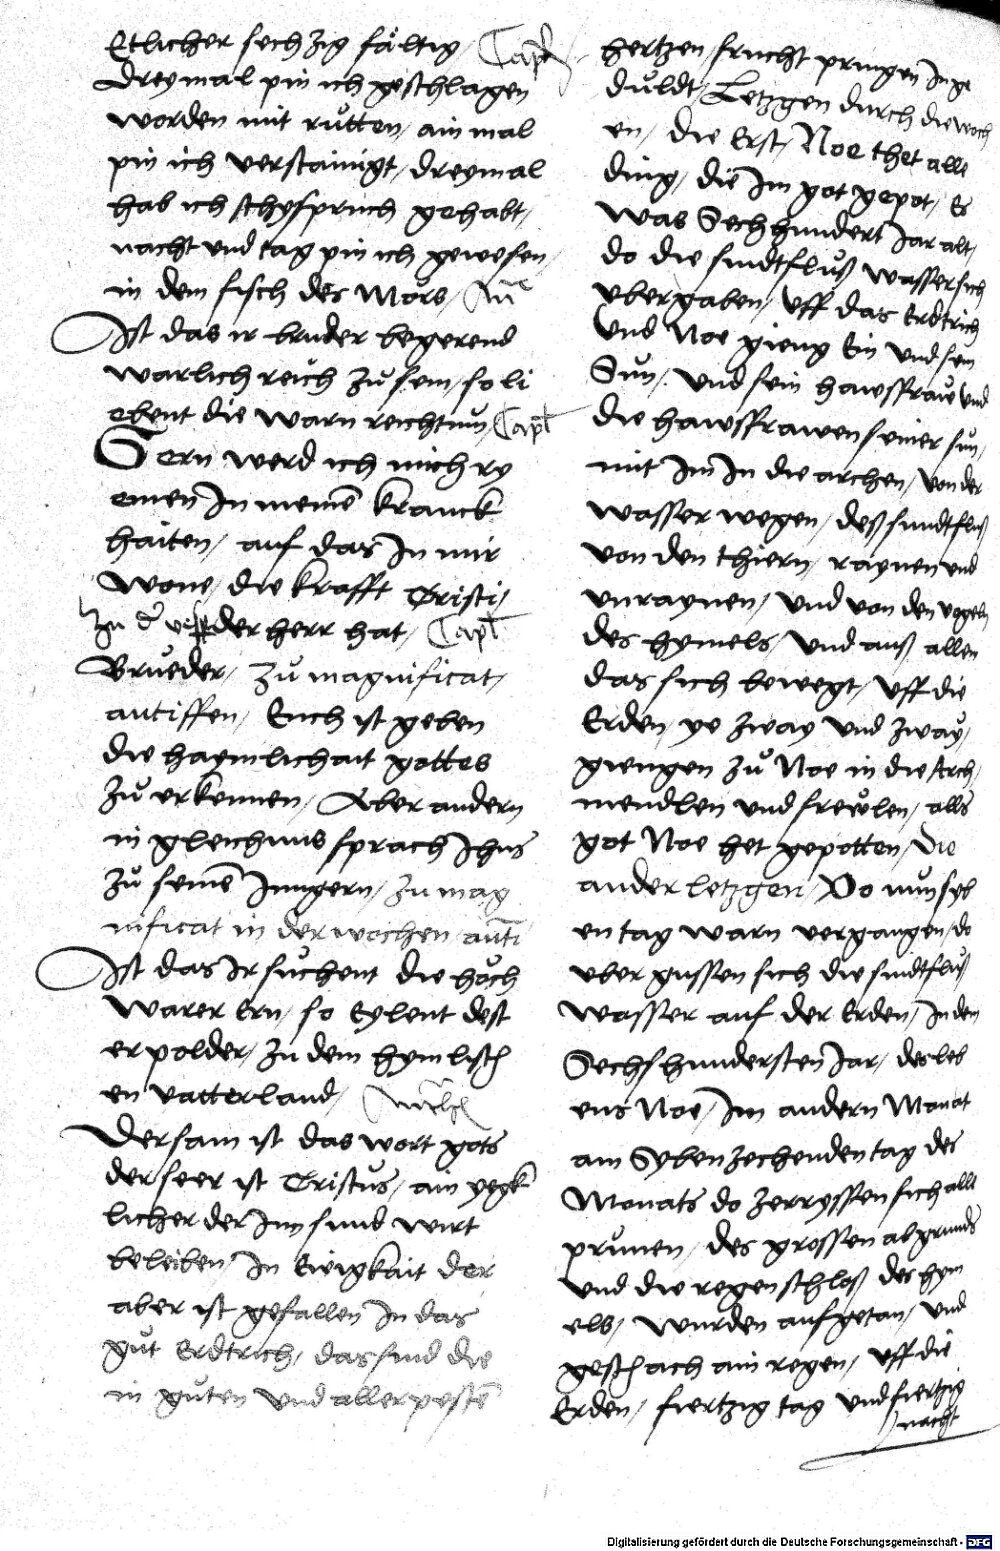 Etlicher sechzig fältig / Capl
Dreymal pin ich geschlagen
worden mit rutten / ain mal
pin ich verstainigt / dreymal
hab ich schyfpruch gehabt /
nacht vnd tag pin ich gewesen /
in dem fisch des Mörs /
Ist das ir bruder begerend
warlich reich zů sein / so li
ebent die warn reichtum / Capl
Gern werd ich mich ry
emen In meinē kranck
haiten / auf das In mir
wone / die krafft Cristi /
Zu d' der herr hat / Capl
Brueder / Zů magnificat /
antiffen / Euch ist geben
die haymlichait gottes
Zů erkennen / Aber andern
in gleichnus sprach Jhus
Zů seinē Jungern / Zu mag
nificat in der wochen / anti
Ist das Ir suchent die höch
warer Ern / so Eylent dest
er polder / Zu dem hymlisch
en vatterland /
Der sam ist das wort gots
der seer ist Cristus / ain yegk
licher der Jm fund wirt
beleiben In Ewigkait der
aber ist gefallen In das
gut Erdtrich / das sind die
in guten vnd aller pesten
hertzen / frucht pringen In ge
duldt / Letzgen durch die woch
en / Die Erst / Noe thet alle
ding / die Im got gepot / Es
was Sechhundert Jar alt /
do die sindtfluß wasser sich
vbergaben / Uff das Erdtrich
Vnd Noe gieng Ein vnd sein
Sun / vnd sein hawsfraw vnd
die hawsfrawen seiner sun /
mit Im In die archen / von der
wasser wegen / deß sundtfluß
von den thiern / raynen vnd
vnraynen / Vnd von den vogeln
des hymels / Vnd auß allen
das sich bewegt / Uff die
Erden / ye zway vnd zway /
giengen zů Noe in die Arch /
mendlen vnd frewlen / alls
got Noe het gepotten / Die
ander letzgen / Do nun syb
en tag warn vergangen / do
vber gussen sich die sindtfluß
wasser auf der Erden / In den
Sechshundersten Jar / des leb
ens Noe / Im andern Monat
am Sybenzechenden tag des
Monats do zerryssen sich alle
prunen / des grossen abgrunds
vnd die regenschloß des hym
els / wurden aufgetan / vnd
geschach ain regen / Uff die
Erden / fiertzig tag vnd fiertzig
nacht
Digitalisierung gefördert durch die Deutsche Forschungsgemeinschaft - DFG